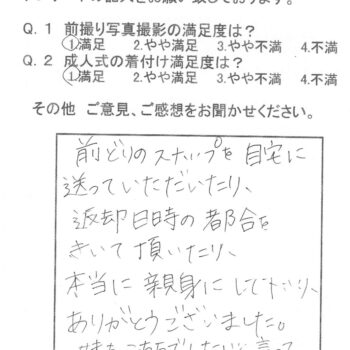 Q.1 前撮り写真撮影の満足度は？
①満足 2.やや満足 3.やや不満 4.不満
Q.2 成人式の着付け満足度は？
①満足 2.やや満足 3.やや不満 4.不満
その他 ご意見、ご感想をお聞かせください。
前どりのスナップを自宅に
送っていただいたり、
返却日時の都合を
きいて頂いたり、
本当に親身にして下さり、
ありがとうございました。